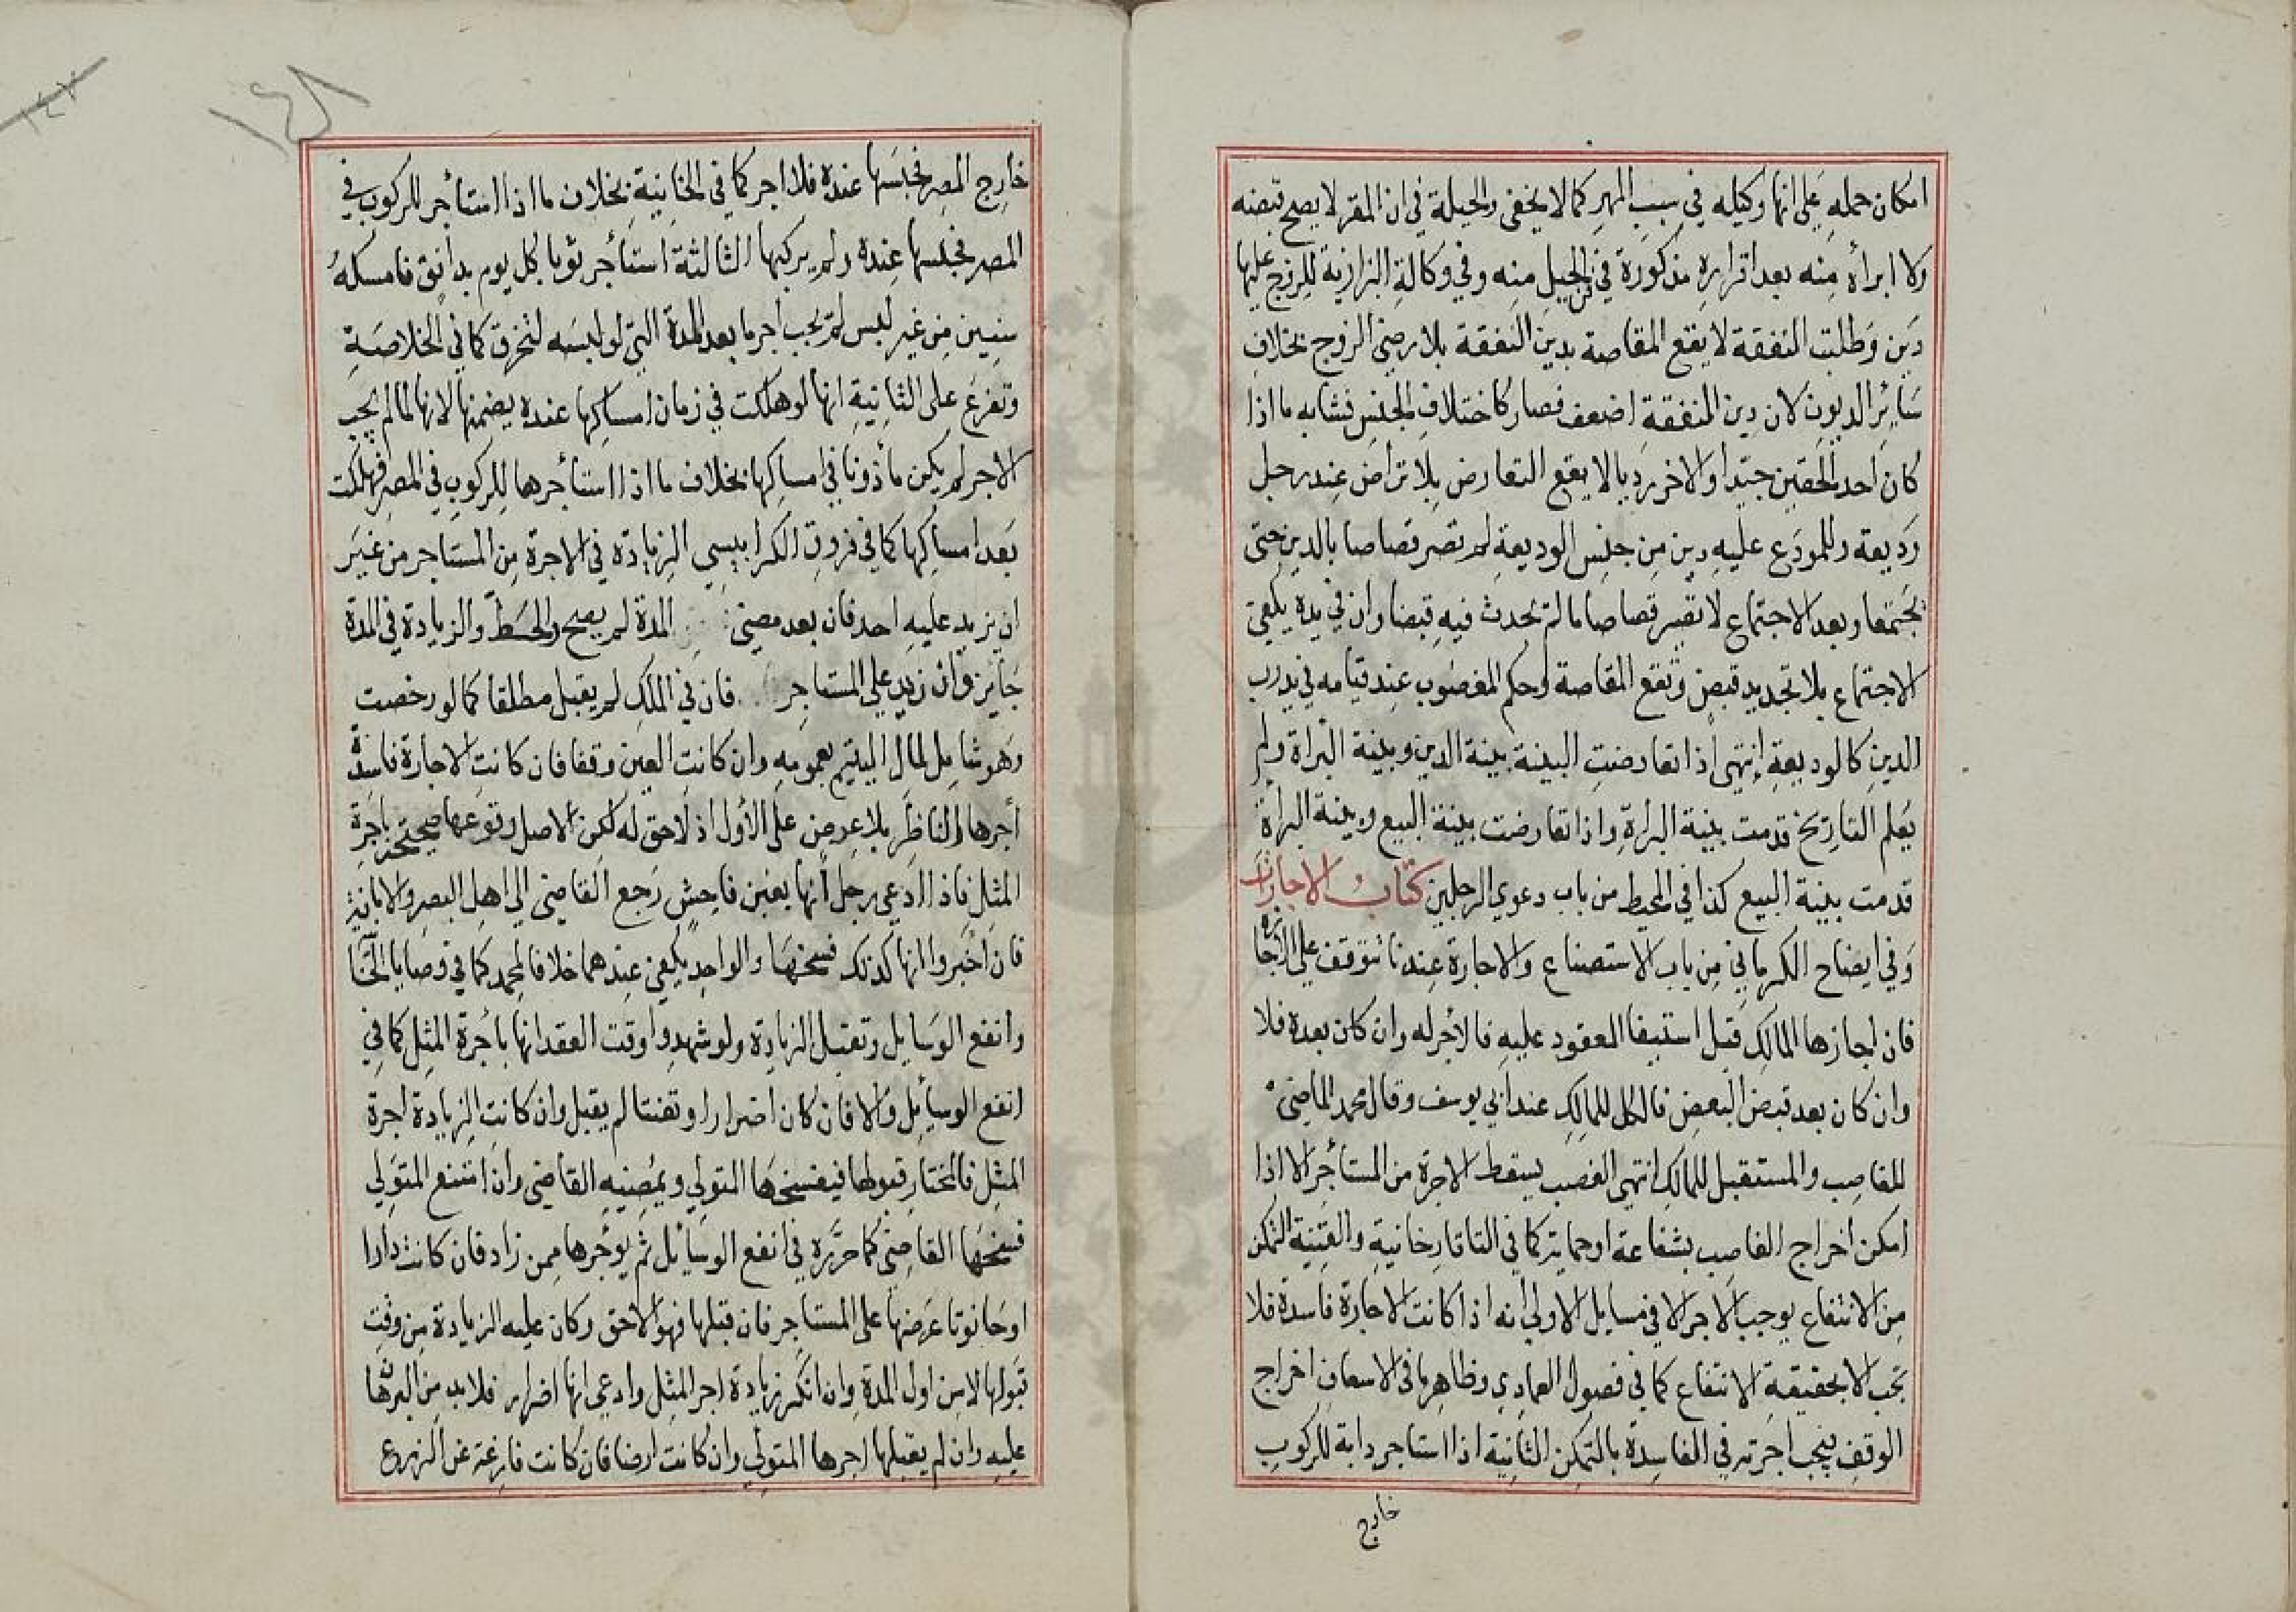 امكان حمله على انها وكيله في سبب المهر كما لا يخفى والحيلة في ان المقر لا يصح قبضه
ولا ابراه منه بعد اقراره مذكورة في فن الحيل منه وفي وكالة البزازية للزوج عليها
دين وطلبت النفقة لا يقع المقاصة بدين النفقة بلا رضى الزوج بخلاف
سائر الديون لان دين النفقة اضعف فصار كاختلاف الجنس فشابه ما اذا
كان احد الحقين جيدا والاخر رديا لا يقع التعارض بلا تراض عند رجل
وديعة وللمودع عليه دين من جنس الوديعة لم تصر قصاصا بالدين حتى
يجتمعا وبعد الاجتماع لا تصير قصاصا ما لم يحدث فيه قبضا وان في يده يكفي
الاجتماع بلا تجديد قبض وتقع المقاصة وحكم المغصوب عند قيامه في يد رب
الدين كالوديعة انتهى اذا تعارضت البينة بينة الدين وبينة البراة ولم
يعلم التاريخ قدمت بينة البراة واذا تعارضت بينة البيع وبينة البراة
قدمت بينة البيع كذا في المحيط من باب دعوي الرجلين كتاب الاجارات
وفي ايضاح الكرماني من باب الاستصناع والاجارة عندنا تتوقف على الاجازة
فان اجازها المالك قبل استيفا المعقود عليه فالاجر له وان كان بعده فلا
وان كان بعد قبض البعض فالكل للمالك عند ابي يوسف وقال محمد الماضي
للغاصب والمستقبل للمالك انتهى الغصب يسقط الاجرة من المستأجر الا اذا
امكن اخراج الغاصب بشفاعة او حماية كما في التاتارخانية والقنية التمكن
من الانتفاع يوجب الاجر الا في مسايل الاولى انه اذا كانت الاجارة فاسدة فلا
تجب الا بحقيقة الانتفاع كما في فصول العمادي وظاهر ما في الاسعاف اخراج
الوقف فيجب اجرته في الفاسدة بالتمكن الثانية اذا استاجر دابة للركوب
خارج
١٤٨
خارج المصر فحبسها عنده فلا اجر كما في الخانية بخلاف ما اذا استأجر للركوب في
المصر فحبسها عنده ولم يركبها الثالثة استأجر ثوبا كل يوم بدانق فامسكه
سنين من غير لبس لم يجب اجر ما بعد المدة التي لو لبسه لتخرق كما في الخلاصة
وتفرع على الثانية انها لو هلكت في زمان امساكها عنده يضمنها لانها لما لم يجب
الاجر لم يكن مأذونا في امساكها بخلاف ما اذا استأجرها للركوب في المصر فهلكت
بعد امساكها كما في فروق الكرابيسي الزيادة في الاجرة من المستاجر من غير
ان يزيد عليه احد فان بعد مضي المدة لم يصح والحط والزيادة في المدة
جايز وان زيد على المستاجر فان في الملك لم يقبل مطلقا كما لو رخصت
وهو شامل لمال اليتيم بعمومه وان كانت العين وقفا فان كانت الاجارة فاسدة
أجرها الناظر بلا عرض على الأول اذ لا حق له لكن الاصل وقوعها صحيحة باجرة
المثل فاذا ادعى رجل أنها بغبن فاحش رجع القاضي الي اهل البصر والامانة
فان اخبروا انها كذلك فسخها والواحد يكفي عندهما خلافا لمحمد كما في وصايا الخا
وانفع الوسايل وتقبل الزيادة ولو شهدوا وقت العقد انها باجرة المثل كما في
انفع الوسائل والا فان كان اضرارا وتعنتا لم يقبل وان كانت الزيادة اجرة
المثل فالمختار قبولها فيفسخها المتولي ويمضيه القاضي وان امتنع المتولي
فسخها القاضي كما حرره في انفع الوسائل ثم يؤجرها ممن زاد فان كانت دارا
او حانوتا عرضها على المستاجر فان قبلها فهو الاحق وكان عليه الزيادة من وقت
قبولها لا من اول المدة وان انكر زيادة اجر المثل وادعي انها اضرار فلا بد من البرهان
عليه وان لم يقبلها اجرها المتولي وان كانت ارضا فان كانت فارغة عن الزرع